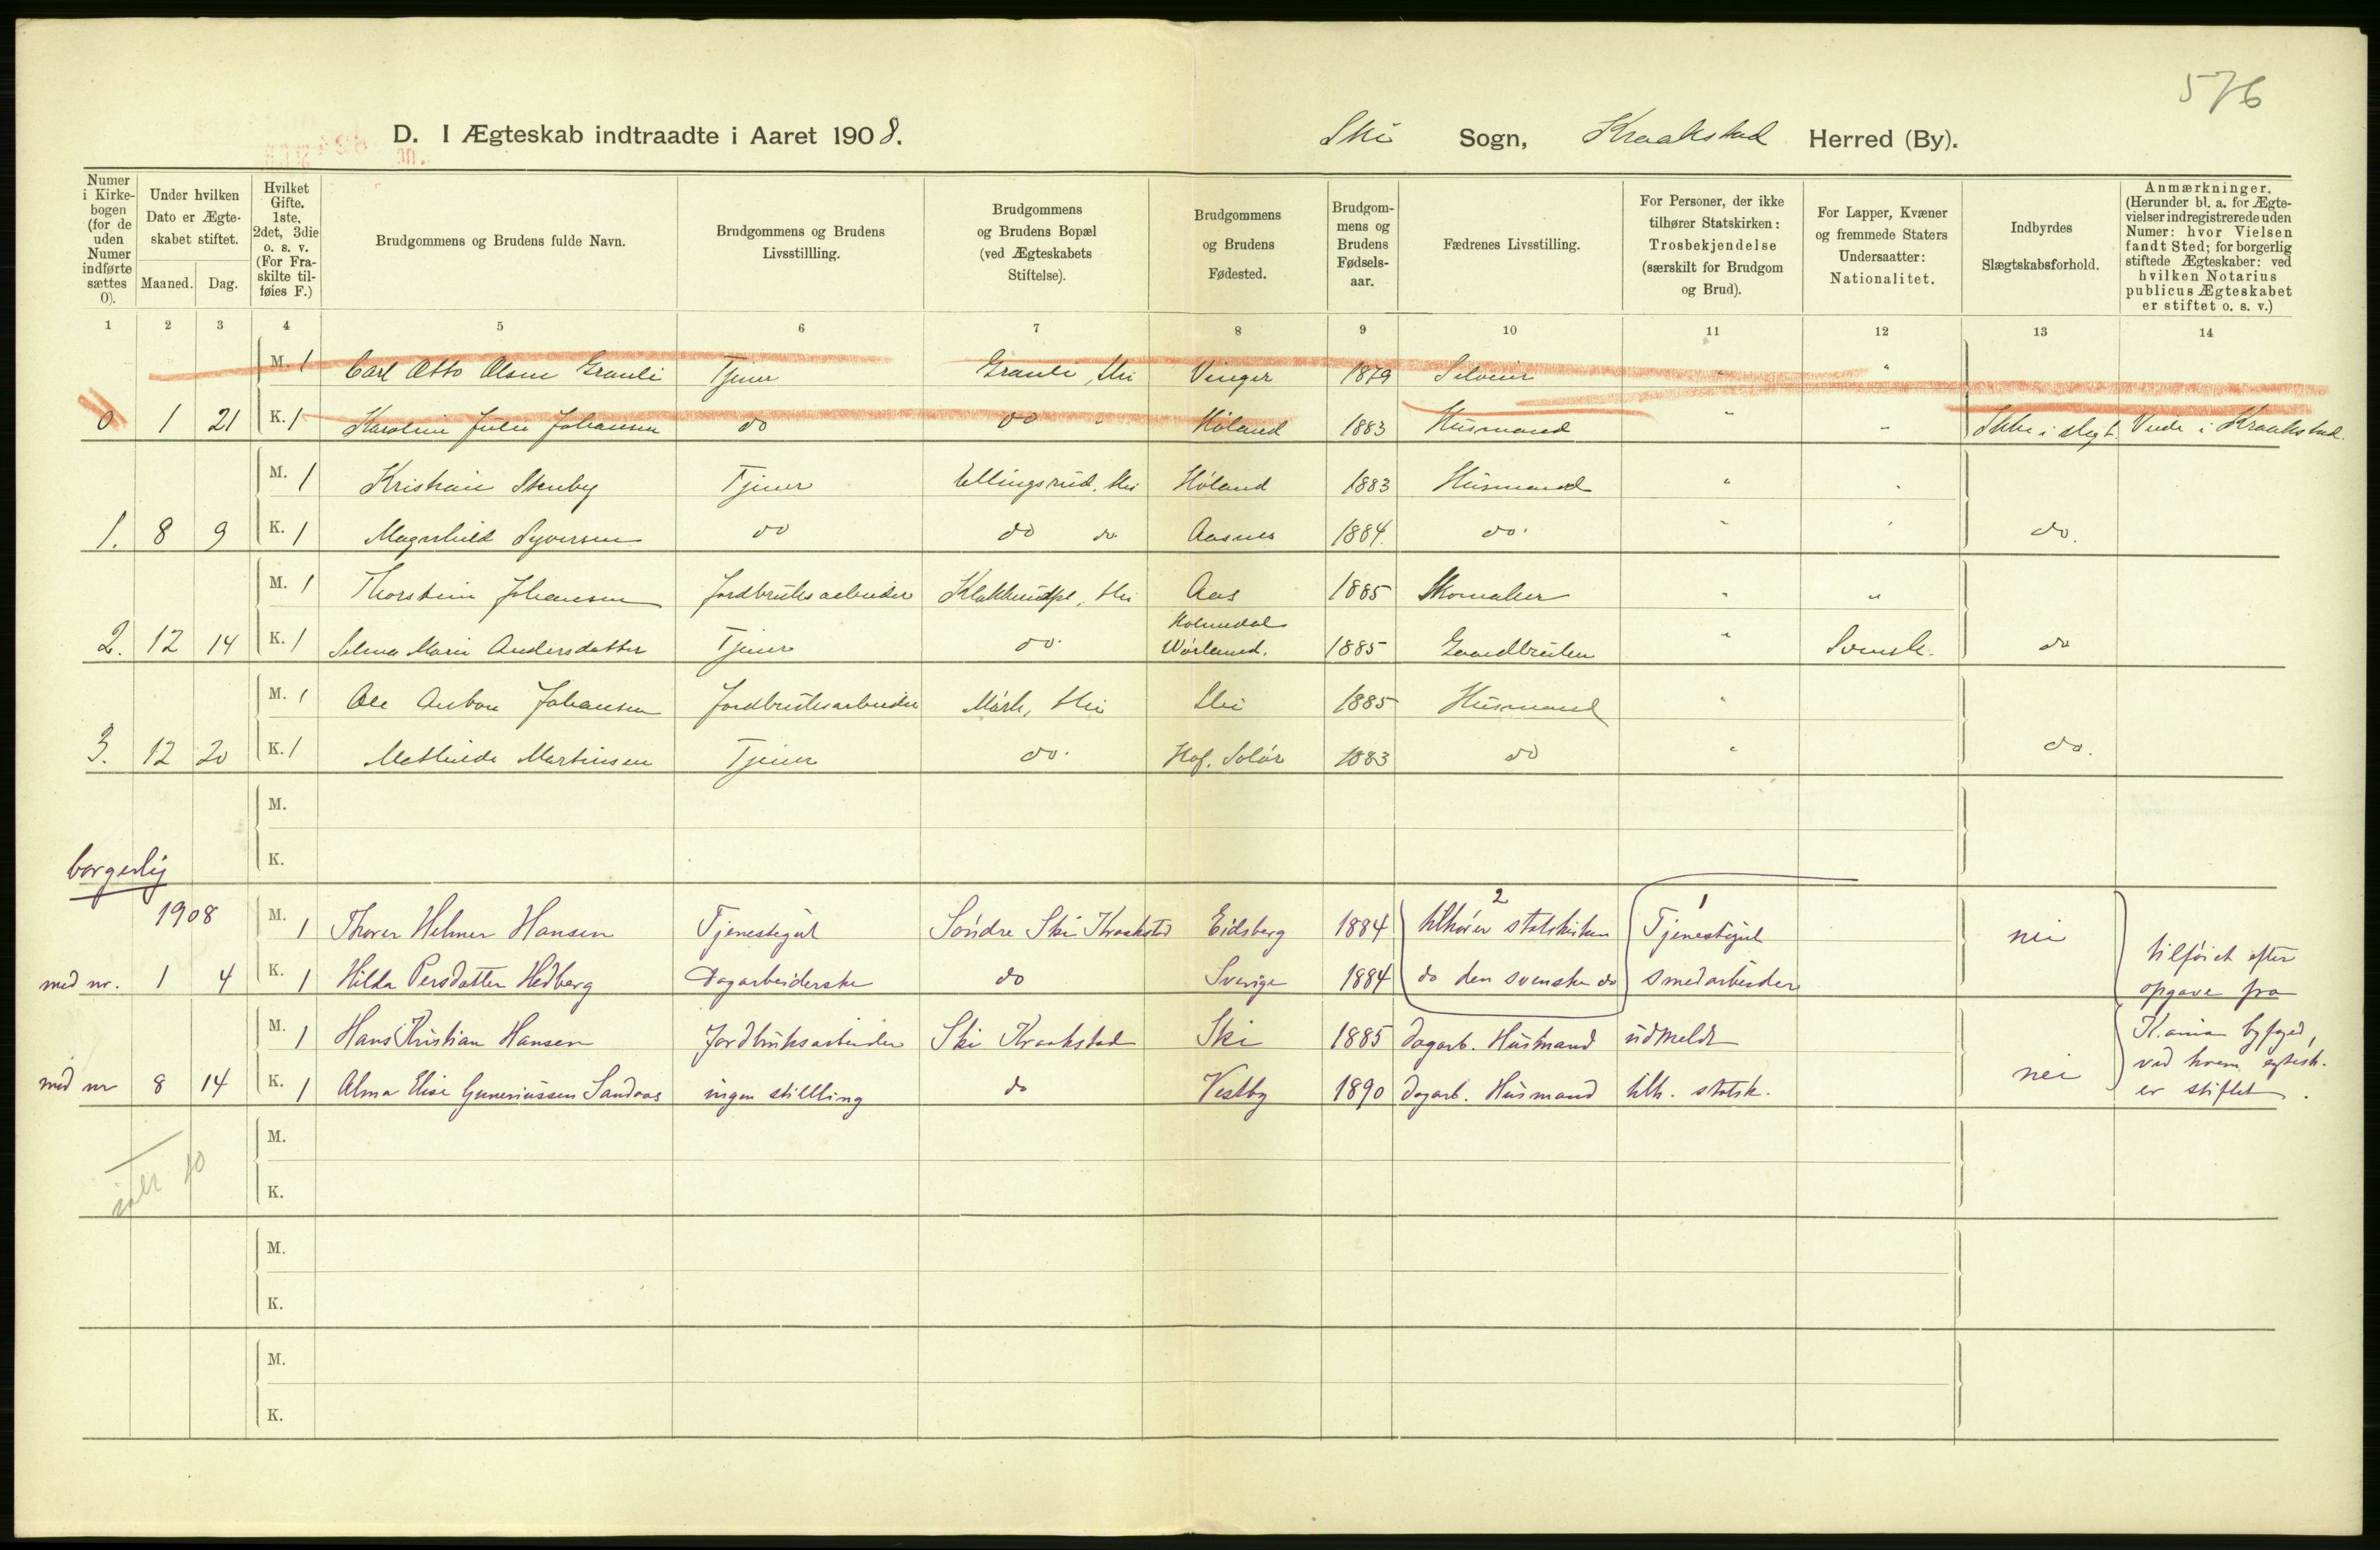 576
D. I Ægteskab indtraadte i Aaret 1908. Ski Sogn, Kraakstad Herred (By).
Numer i Kirkebogen (for de uden Numer indførte sættes 0).
Under hvilken Dato er Ægteskabet stiftet.
Maaned. Dag.
Hvilket Gifte. 1ste, 2det, 3die o. s. v. (For Fraskilte tilføies F.)
Brudgommens og Brudens fulde Navn.
Brudgommens og Brudens Livsstillling.
Brudgommens og Brudens Bopæl (ved Ægteskabets Stiftelse).
Brudgommens og Brudens Fødested.
Brudgommens og Brudens Fødselsaar.
Fædrenes Livsstilling.
For Personer, der ikke tilhører Statskirken: Trosbekjendelse (særskilt for Brudgom og Brud).
For Lapper, Kvæner og fremmede Staters Undersaatter: Nationalitet.
Indbyrdes Slægtskabsforhold.
Anmærkninger. (Herunder bl. a. for Ægtevielser indregistrerede uden Numer: hvor Vielsen fandt Sted; for borgerlig stiftede Ægteskaber: ved hvilken Notarius publicus Ægteskabet er stiftet o. s. v.)
1 2 3 4 5 6 7 8 9 10 11 12 13 14
M. 1 Carl Otto Olsen Granli Tjener Granli, Ski Vinger 1879 Seloeier " "
0 1 21 K. 1 Karoline Julie Johansen do do " Høland 1883 Husmand " " Ikke i slegt. Viede i Kraakstad.
M. 1 Kristian Stenby Tjener Ellingsrud, Ski Høland 1883 Husmand " "
1. 8 9 K. 1 Magnhild Syversen do do do Aasnes 1884. do. " " do.
M. 1 Thorstein Johansen Jordbruksarbeider Ski Aas 1885 Skomaker " "
2. 12 14 K. 1 Selma Marie Andersdatter Tjener do. Holmedal Värland. 1885 Gaardbruker " Svensk. do
M. 1 Ole Anton Johansen Jordbruksarbeider Mørk, Ski Ski 1885 Husmand "
3. 12 20 K. 1 Mathilde Martinsen Tjener do. Hof. Solør 1883 do " do.
M.
K.
borgerlig
1908 M. 1 Thorer Helmer Hansen Tjenestegut Søndre Ski Kraakstad Eidsberg 1884 2 tilhører statskirken 1 Tjenestegut nei
med nr. 1 4 K. 1 Hilda Persdatter Hedberg Dagarbeiderske do Sverige 1884 do den svenske do smedarbeider
M. 1 Hans Kristian Hansen Jordbruksarbeider Ski Kraakstad Ski 1885 dagarb. Husmand udmeldt
med nr 8 14 K. 1 Alma Elise Guneriussen Sandaas ingen stillling do Vestby 1890 dagarb. Husmand tilh. statsk. nei
tilføiet efter
opgave fra
K.ania byfoged,
ved hvem egtesk.
er stiftet.
M.
K.
ialt 10
M.
K.
M.
K.